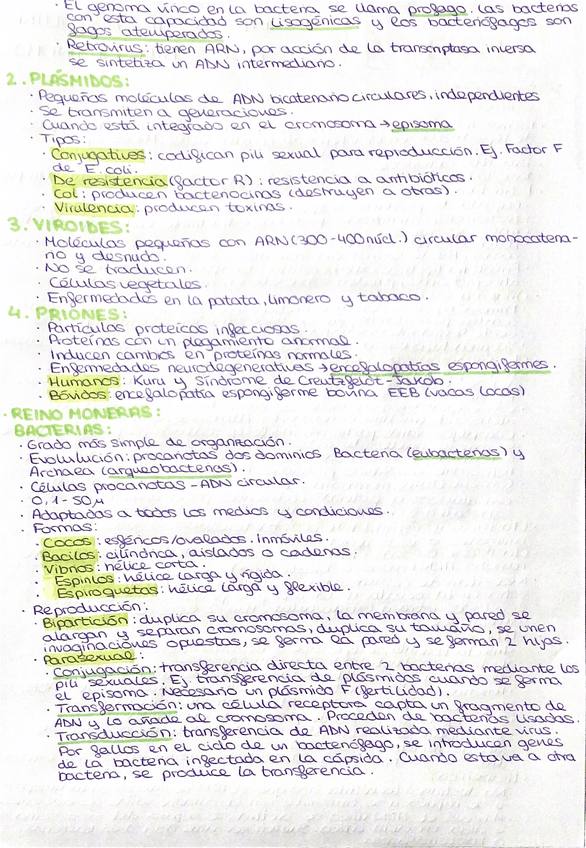 · El genoma vírico en la bacteria se llama profago. Las bacterias
con esta capacidad son lisogénicas y los bacteriófagos son
fagos atemperados.
· Retrovirus: tienen ARN, por acción de la transcriptasa inversa
se sintetiza un ADN intermediario.
2. PLÁSMIDOS:
· Pequeñas moléculas de ADN bicatenario circulares, independientes
· Se transmiten a generaciones.
· Cuando está integrado en el cromosoma → episoma
· Tipos:
· Conjugativos: codifican pili sexual para reproducción. Ej. Factor F
de E. coli.
· De resistencia (factor R): resistencia a antibióticos.
· Col: producen bacteriocinas (destruyen a otras).
· Virulencia: producen toxinas.
3. VIROIDES:
· Moléculas pequeñas con ARN (300-400 núcl.) circular monocatena-
rio y desnudo.
· No se traducen.
· Células vegetales.
· Enfermedades en la patata, limonero y tabaco.
4. PRIONES:
· Partículas proteicas infecciosas.
· Proteínas con un plegamiento anormal.
· Inducen cambios en proteínas normales.
· Enfermedades neurodegenerativas → encefalopatías espongiformes.
· Humanos: Kuru y Síndrome de Creutzfeldt-Jakob.
· Bóvidos: encefalopatía espongiforme bovina EEB (vacas locas)
· REINO MONERAS:
BACTERIAS:
· Grado más simple de organización.
· Evolulución: procariotas dos dominios Bacteria (eubacterias) y
Archaea (arqueobacterias).
· Células procariotas - ADN circular.
· 0,1-50 µ
· Adaptadas a todos los medios y condiciones.
· Formas:
· Cocos: esféricos/ovalados. Inmóviles.
· Bacilos: cilíndrica, aislados o cadenas.
· Vibrios: hélice corta.
· Espirilos: hélice larga y rígida.
· Espiroquetas: hélice larga y flexible.
· Reproducción:
· Bipartición: duplica su cromosoma, la membrana y pared se
alargan y separan cromosomas, duplica su tamaño, se unen
invaginaciones opuestas, se forma la pared y se forman 2 hijas.
· Parasexual:
· Conjugación: transferencia directa entre 2 bacterias mediante los
pili sexuales. Ej transferencia de plásmidos cuando se forma
el episoma. Necesario un plásmido F (fertilidad).
· Transformación: una célula receptora capta un fragmento de
ADN y lo añade al cromosoma. Proceden de bacterias lisadas.
· Transducción: transferencia de ADN realizada mediante virus.
Por fallos en el ciclo de un bacteriófago, se introducen genes
de la bacteria infectada en la cápsida. Cuando esta va a otra
bacteria, se produce la transferencia.